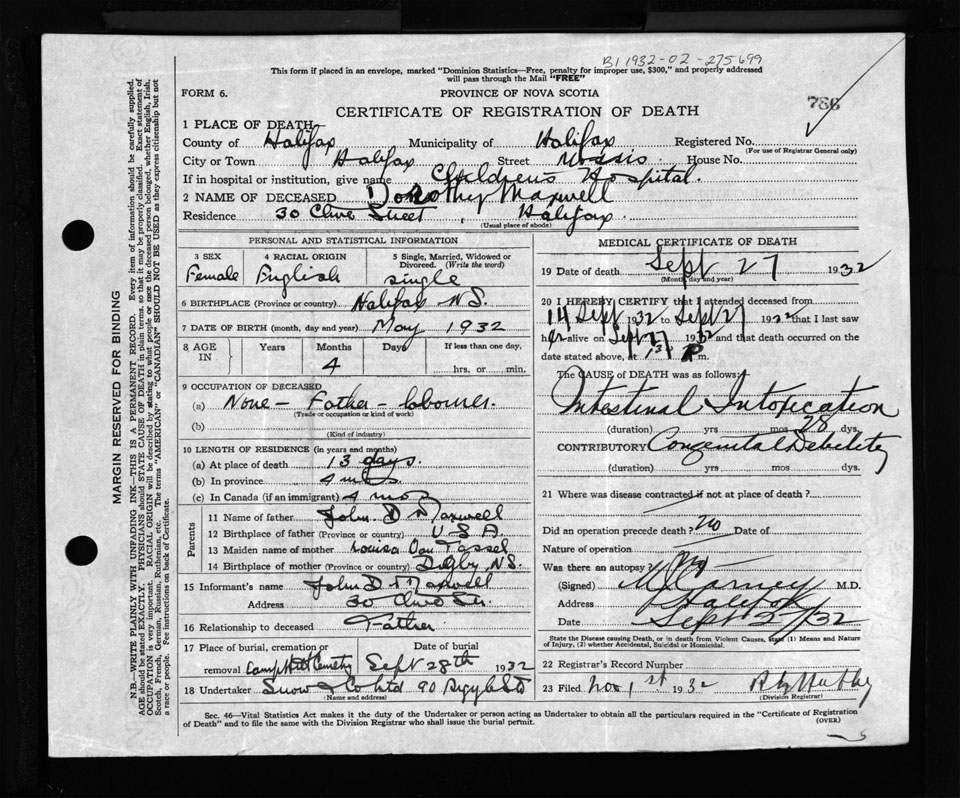 B1 1932-02-275699
This form if placed in an envelope, marked "Dominion Statistics—Free, penalty for improper use, $300," and properly addressed
will pass through the Mail "FREE"
FORM 6.
PROVINCE OF NOVA SCOTIA
786
CERTIFICATE OF REGISTRATION OF DEATH
1 PLACE OF DEATH—
County of Halifax Municipality of Halifax Registered No.
(For use of Registrar General only)
City or Town Halifax Street House No.
If in hospital or institution, give name Children's Hospital.
2 NAME OF DECEASED Dorothy Maxwell
Residence 30 Clive Street, Halifax
(Usual place of abode)
PERSONAL AND STATISTICAL INFORMATION
3 SEX 4 RACIAL ORIGIN 5 Single, Married, Widowed or Divorced. (Write the word)
Female English single
6 BIRTHPLACE (Province or country) Halifax N.S.
7 DATE OF BIRTH (month, day and year) May 1932
8 AGE IN Years Months Days If less than one day,
4
hrs. or min.
9 OCCUPATION OF DECEASED
(a) None — Father — labourer.
(Trade or occupation or kind of work)
(b)
(Kind of industry)
10 LENGTH OF RESIDENCE (in years and months)
(a) At place of death 13 days.
(b) In province 4 mos
(c) In Canada (if an immigrant) 4 mos
Parents
11 Name of father John D Maxwell
12 Birthplace of father (Province or country) U.S.A.
13 Maiden name of mother Louisa Van Tassel
14 Birthplace of mother (Province or country) Digby N.S.
15 Informant's name John D Maxwell
Address 30 Clive Str.
16 Relationship to deceased Father
17 Place of burial, cremation or removal Date of burial
Camp Hill Cemetry Sept 28th 1932
18 Undertaker Snow & Co Ltd 90 Argyle St
Name and address
MEDICAL CERTIFICATE OF DEATH
19 Date of death Sept 27 1932
(Month, day and year)
20 I HEREBY CERTIFY that I attended deceased from
14 Sept 1932 to Sept 27 1932 that I last saw
her alive on Sept 27 1932 and that death occurred on the
date stated above, at P. m.
The CAUSE OF DEATH was as follows:
Intestinal Intoxication
(duration) yrs mos 28 dys.
CONTRIBUTORY Congenital Debility
(duration) yrs mos. dys.
21 Where was disease contracted if not at place of death?
Did an operation precede death? No Date of
Nature of operation
Was there an autopsy? No
(Signed) M.D.
Address Halifax
Date Sept 27/32
State the Disease causing Death, or in death from Violent Causes, state (1) Means and Nature
of Injury, (2) whether Accidental, Suicidal or Homicidal.
22 Registrar's Record Number
23 Filed Nov 1st 1932
(Division Registrar)
Sec. 46—Vital Statistics Act makes it the duty of the Undertaker or person acting as Undertaker to obtain all the particulars required in the "Certificate of Registration
of Death" and to file the same with the Division Registrar who shall issue the burial permit.
(OVER)
MARGIN RESERVED FOR BINDING
N.B.—WRITE PLAINLY WITH UNFADING INK—THIS IS A PERMANENT RECORD. Every item of information should be carefully supplied.
AGE should be stated EXACTLY. PHYSICIANS should STATE CAUSE OF DEATH in plain terms so that it may be properly classified. Exact statement of
OCCUPATION is very important. RACIAL ORIGIN will be described by stating to what people or race the deceased person belonged, whether English, Irish,
Scotch, French, German, Russian, Ruthenian, etc. The terms "AMERICAN" or "CANADIAN" SHOULD NOT BE USED as they express citizenship but not
a race or people. See instructions on back of Certificate.